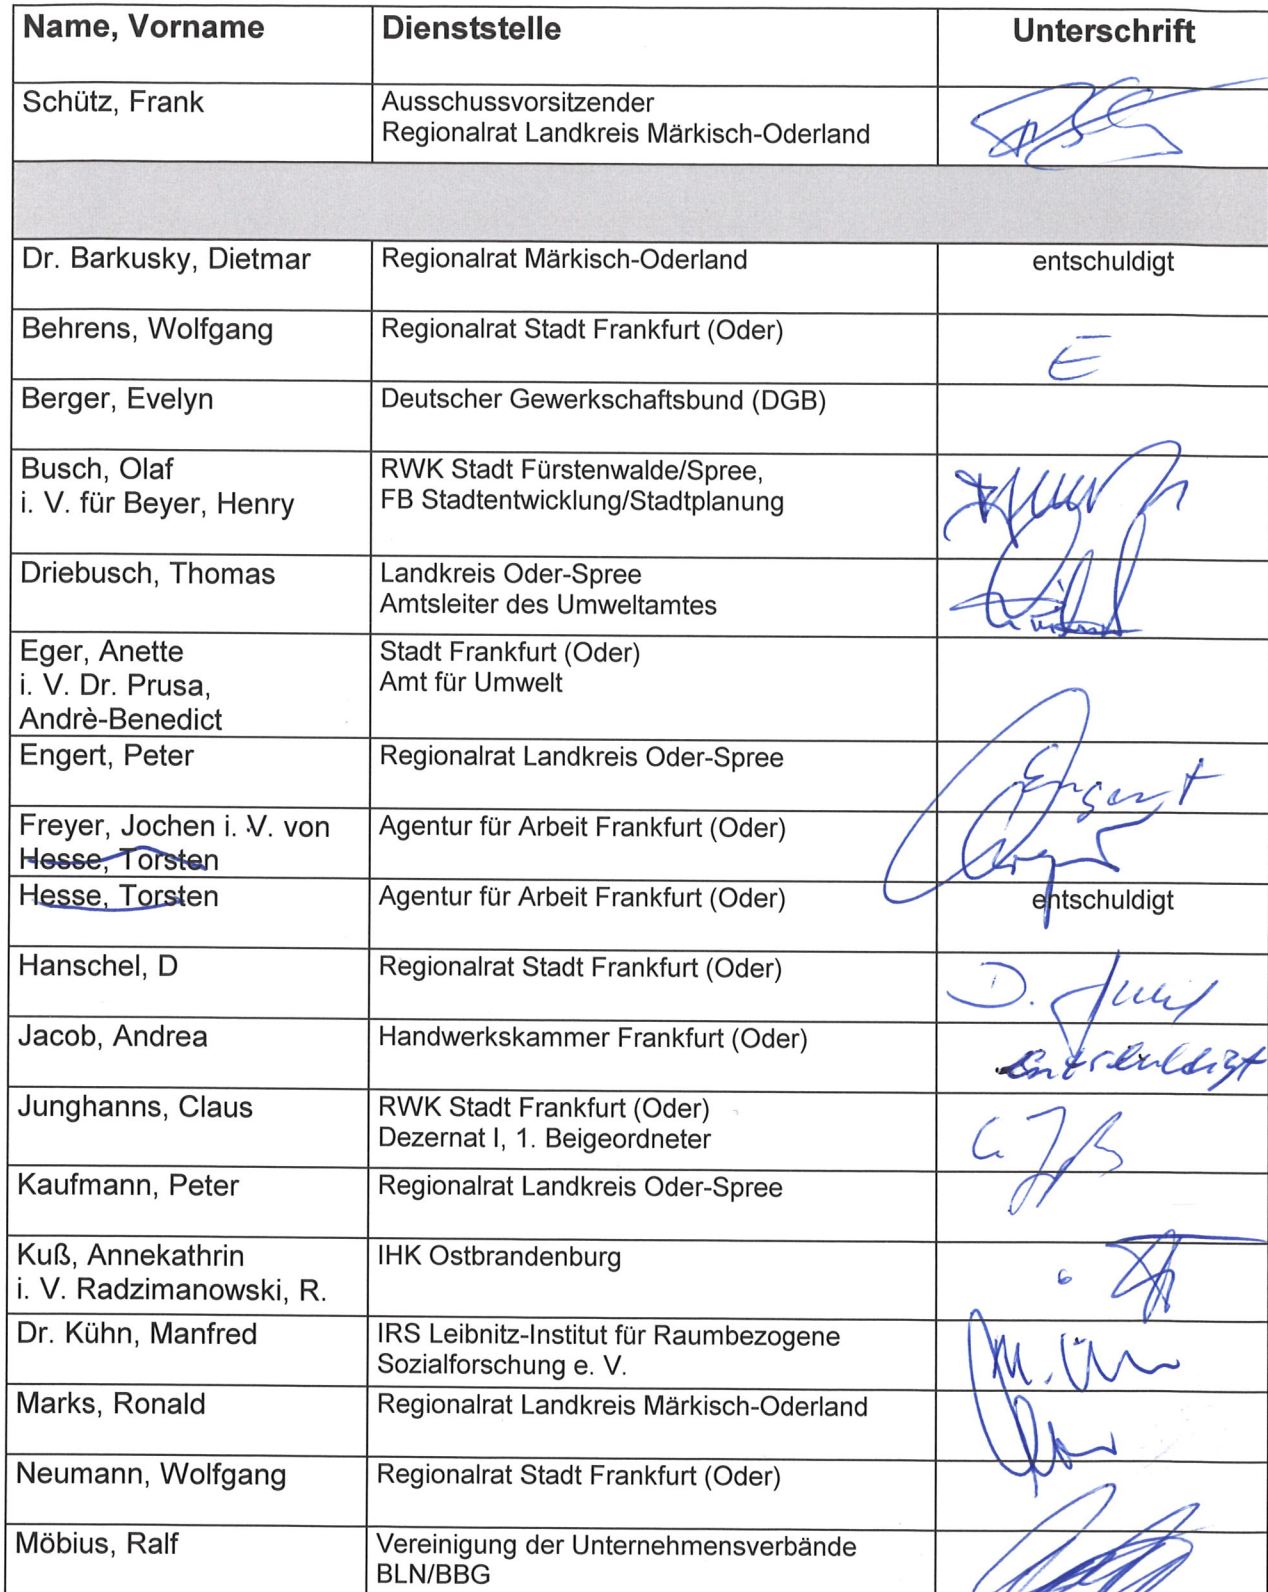 Name, Vorname Dienststelle Unterschrift
Schütz, Frank Ausschussvorsitzender
Regionalrat Landkreis Märkisch-Oderland
Dr. Barkusky, Dietmar Regionalrat Märkisch-Oderland entschuldigt
Behrens, Wolfgang Regionalrat Stadt Frankfurt (Oder)
E
Berger, Evelyn Deutscher Gewerkschaftsbund (DGB)
Busch, Olaf RWK Stadt Fürstenwalde/Spree,
i. V. für Beyer, Henry FB Stadtentwicklung/Stadtplanung
Driebusch, Thomas Landkreis Oder-Spree
Amtsleiter des Umweltamtes
Eger, Anette Stadt Frankfurt (Oder)
i. V. Dr. Prusa, Amt für Umwelt
Andrè-Benedict
Engert, Peter Regionalrat Landkreis Oder-Spree
Engert
Freyer, Jochen i. V. von Agentur für Arbeit Frankfurt (Oder)
Hesse, Torsten
Hesse, Torsten Agentur für Arbeit Frankfurt (Oder) entschuldigt
Hanschel, D Regionalrat Stadt Frankfurt (Oder)
D.
Jacob, Andrea Handwerkskammer Frankfurt (Oder)
entschuldigt
Junghanns, Claus RWK Stadt Frankfurt (Oder)
Dezernat I, 1. Beigeordneter
Kaufmann, Peter Regionalrat Landkreis Oder-Spree
Kuß, Annekathrin IHK Ostbrandenburg
i. V. Radzimanowski, R.
Dr. Kühn, Manfred IRS Leibnitz-Institut für Raumbezogene
Sozialforschung e. V.
M.
Marks, Ronald Regionalrat Landkreis Märkisch-Oderland
Neumann, Wolfgang Regionalrat Stadt Frankfurt (Oder)
Möbius, Ralf Vereinigung der Unternehmensverbände
BLN/BBG